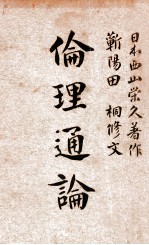 日本西山栄久著作
蘄陽田桐修文
倫理通論